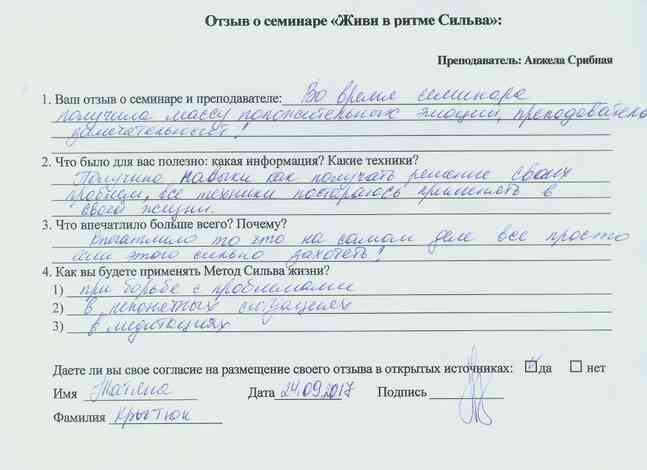 Отзыв о семинаре «Живи в ритме Сильва»:
Преподаватель: Анжела Срибная
1. Ваш отзыв о семинаре и преподавателе: Во время семинара
получила массу положительных эмоций, преподаватель
замечательный!
2. Что было для вас полезно: какая информация? Какие техники?
Получила навыки как получать решение своих
проблем, все техники постараюсь применять в
своей жизни.
3. Что впечатлило больше всего? Почему?
Впечатлило то что на самом деле все просто
если этого сильно захотеть!
4. Как вы будете применять Метод Сильва жизни?
1) при борьбе с проблемами
2) в непонятных ситуациях
3) в медитациях
Даете ли вы свое согласие на размещение своего отзыва в открытых источниках: да нет
Имя Татяна Дата 24.09.2017 Подпись
Фамилия